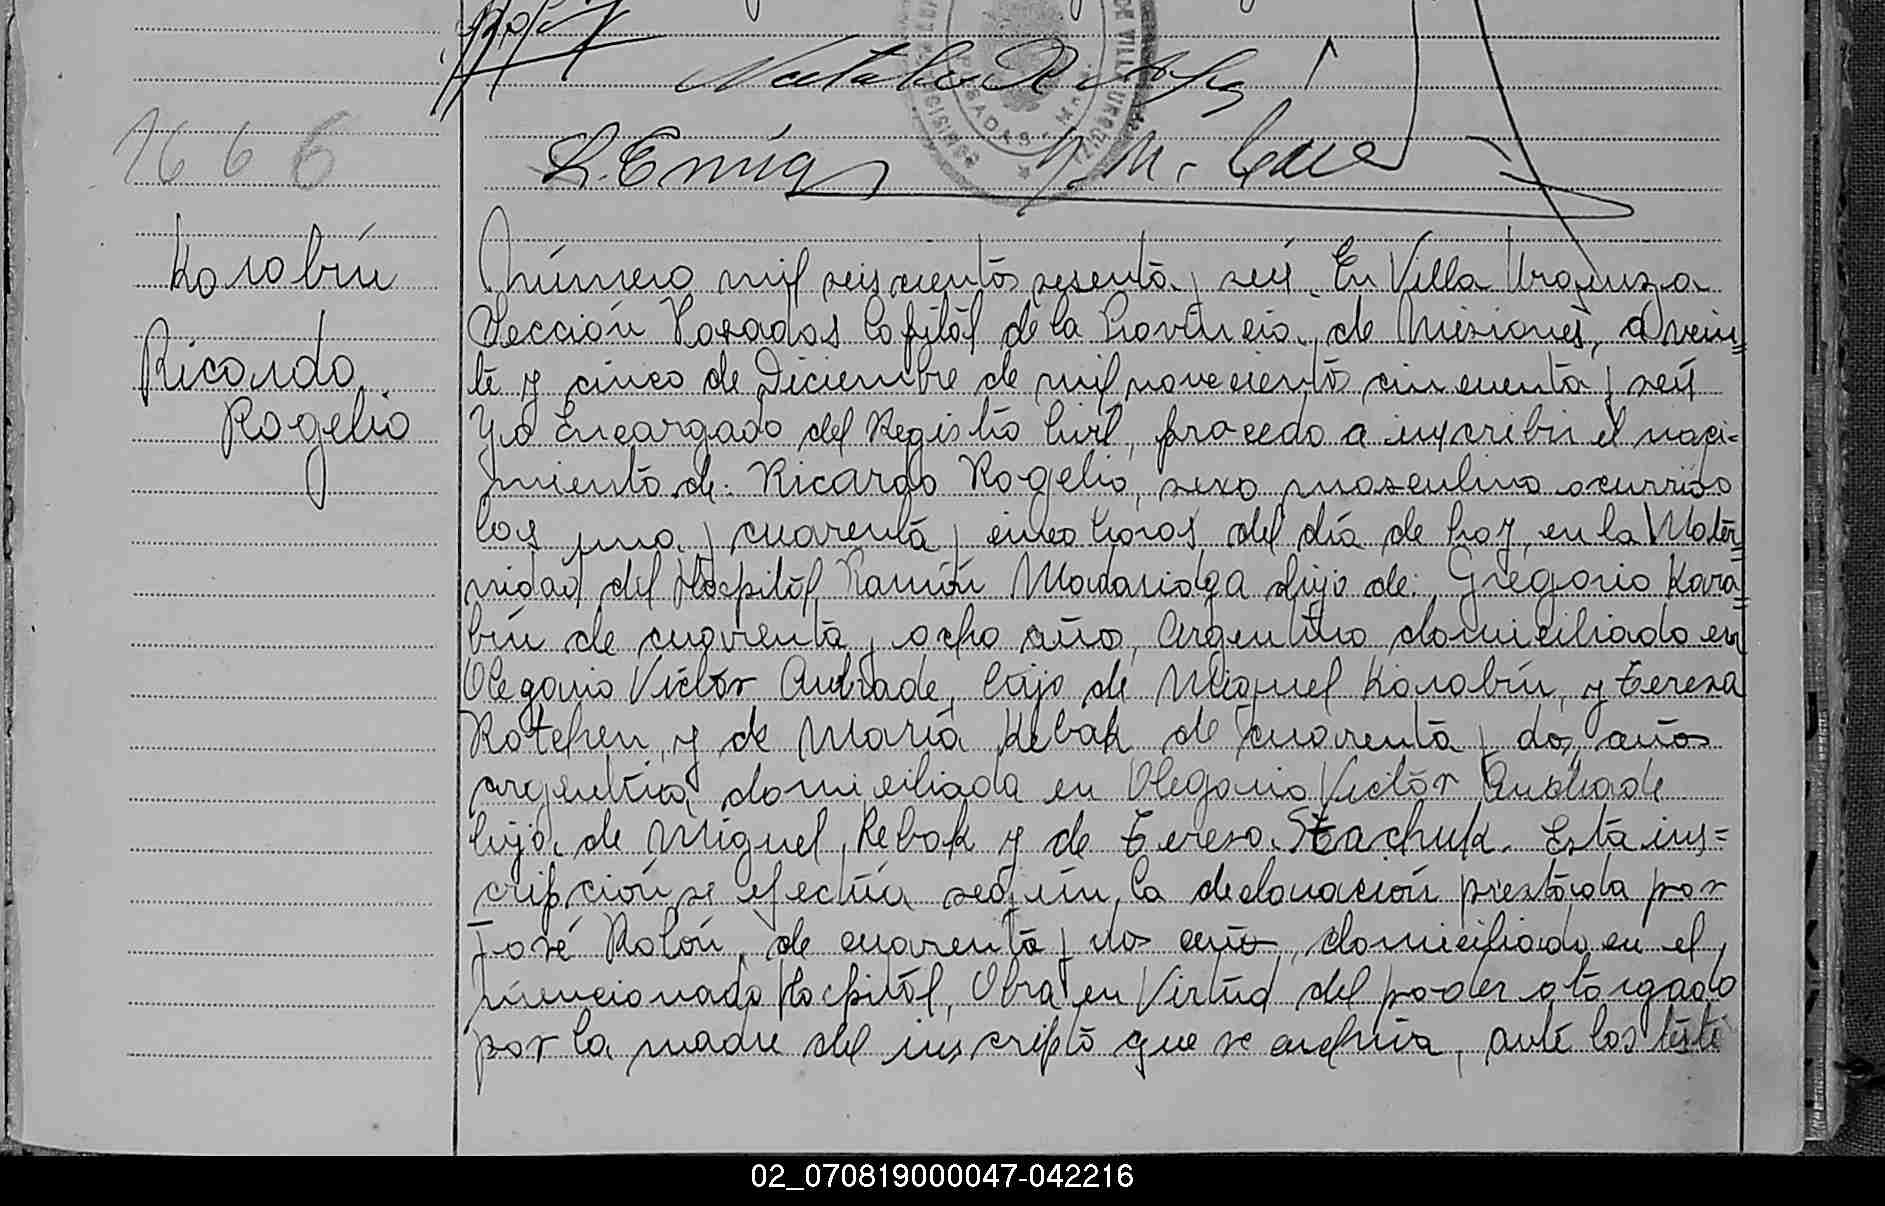 1666
Karabin
Ricardo
Rogelio
Número mil seiscientos sesenta y seis. En Villa Urquiza
Sección Posadas Capital de la Provincia de Misiones, a vein=
te y cinco de Diciembre de mil novecientos cincuenta y seis
Yo Encargado del Registro Civil, procedo a inscribir el naci=
miento de: Ricardo Rogelio, sexo masculino ocurrido
las una y cuarenta y cinco horas del día de hoy, en la Mater=
nidad del Hospital Ramón Madariaga hijo de: Gregorio Kara=
bin de cuarenta y ocho años, Argentino domiciliado en
Olegario Victor Andrade, hijo de Miguel Karabin, y Teresa
y de María Rebak de cuarenta y dos años
argentina domiciliada en Olegario Victor Andrade
hija de Miguel Rebak y de Teresa Stachuk. Esta ins=
cripción se efectúa según la declaración prestada por
José Rolón, de cuarenta y dos años domiciliado en el
mencionado Hospital, Obra en Virtud del poder otorgado
por la madre del inscripto que se archiva, ante los testi
02_070819000047-042216